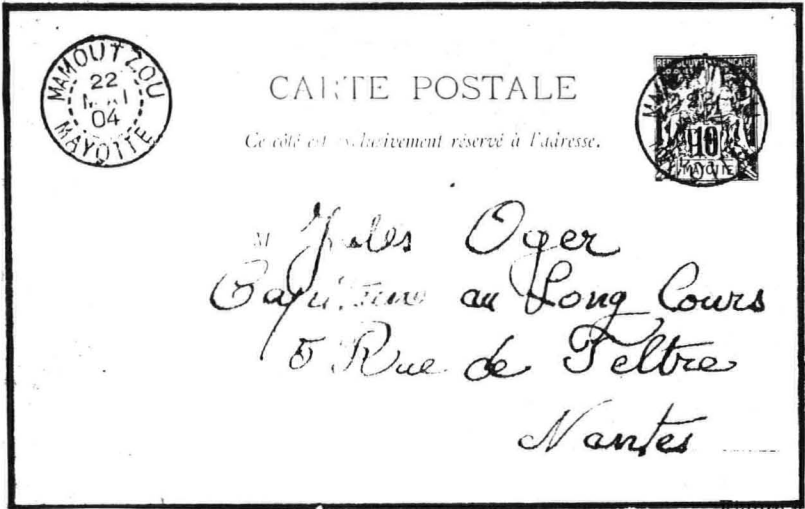 MAMOUTZOU
22
MAI
04
MAYOTTE
CARTE POSTALE
Ce côté est exclusivement réservé à l'adresse.
REPUBLIQUE FRANÇAISE
10
MAYOTTE
M Jules Oger
Capitaine au Long Cours
5 Rue de Feltre
Nantes